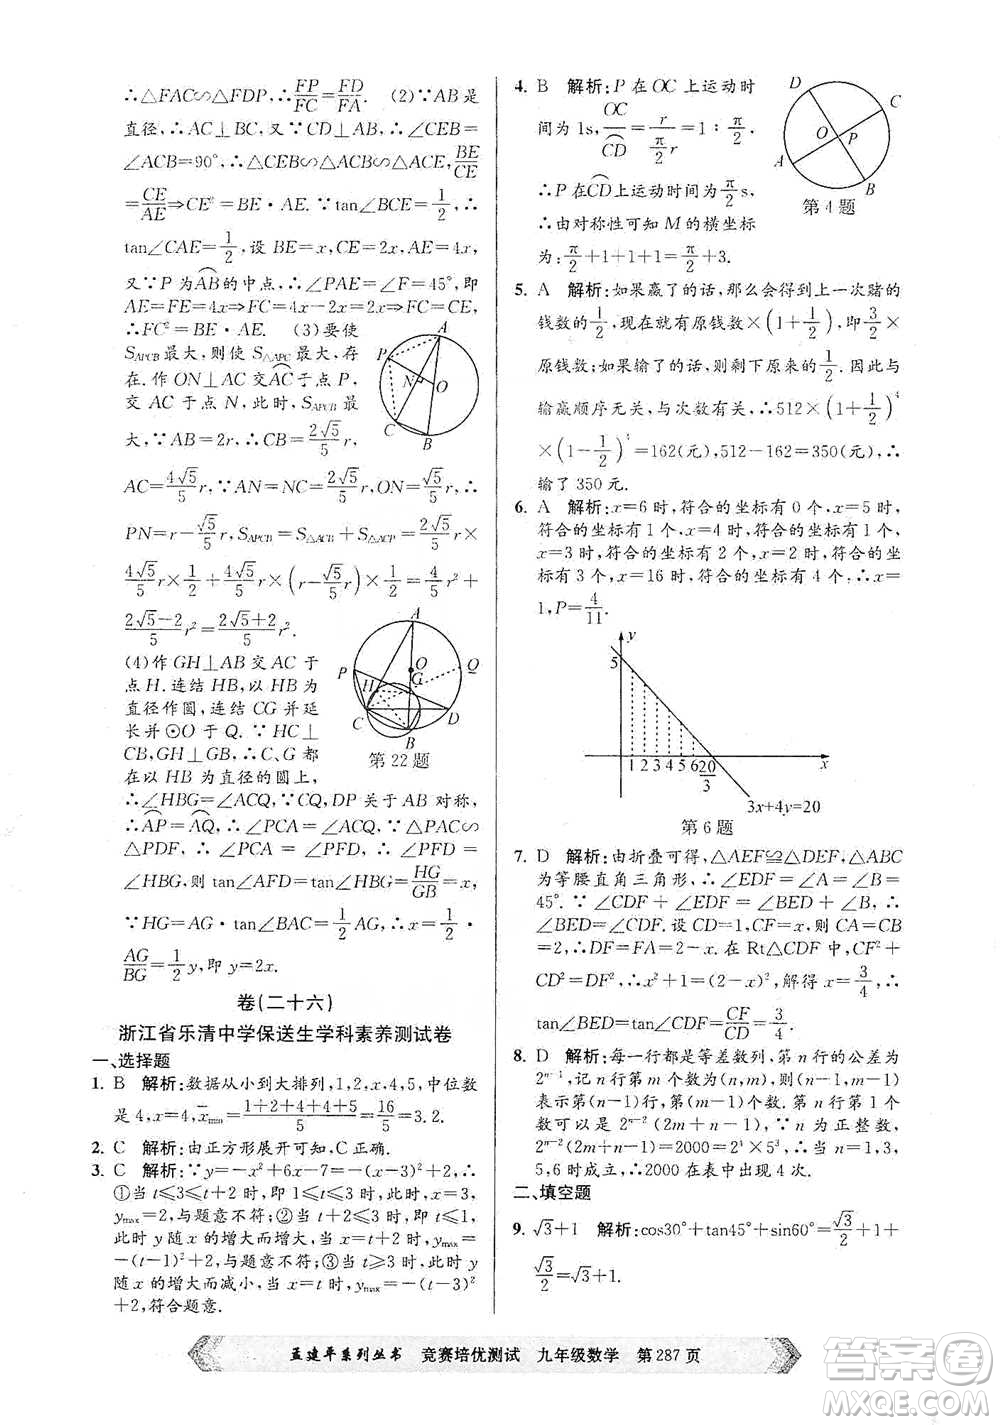 ∴△FAC∽△FDP,∴FP/FC=FD/FA. (2)∵AB是
直径,∴AC⊥BC.又∵CD⊥AB,∴∠CEB=
∠ACB=90°,∴△CEB∽△ACB∽△ACE,BE/CE
=CE/AE⇒CE²=BE·AE.∵tan∠BCE=1/2,∴
tan∠CAE=1/2,设BE=x,CE=2x,AE=4x,
又∵P为AB的中点,∴∠PAE=∠F=45°,即
AE=FE=4x⇒FC=4x-2x=2x⇒FC=CE,
∴FC²=BE·AE. (3)要使
S△PCB最大,则使S△APC最大,存
在.作ON⊥AC交AC于点P,
交AC于点N,此时,SAPCB最
大,∵AB=2r,∴CB=2√5/5 r,
AC=4√5/5 r,∵AN=NC=2√5/5 r,ON=√5/5 r,∴
PN=r-√5/5 r,∴SAPCB=S△ACB+S△ACP=1/2×
4√5/5 r×2√5/5 r+1/2×4√5/5 r×(r-√5/5 r)=4/5 r²+
2√5-2/5 r²=2√5+2/5 r².
(4)作GH⊥AB交AC于
点H.连结HB,以HB为
直径作圆,连结CG并延
长并⊙O于Q.∵HC⊥
CB,GH⊥GB,∴C、G都
在以HB为直径的圆上,
∴∠HBG=∠ACQ,∵C,DP关于AB对称,
∴AP=AQ,∴∠PCA=∠ACQ,∵△AFC∽
△PDF,∴∠PCA=∠PFD,∴∠PFD=
∠HBG,则tan∠AFD=tan∠HBG=HG/GB=x/y,
∵HG=AG·tan∠BAC=1/2 AG,∴x/y=1/2×
AG/BG=1/2 y,即y=2x.
A
P
N
O
C
B
A
P
O
Q
H
G
C
D
B
第22题
卷(二十六)
浙江省乐清中学保送生学科素养测试卷
一、选择题
1. B 解析:数据从小到大排列,1,2,x,4,5,中位数
是4,x=4,x̄min=1+2+4+4+5/5=16/5=3.2.
2. C 解析:由正方形展开可知,C正确.
3. C 解析:∵y=-x²+6x-7=-(x-3)²+2,
①当t≤3≤t+2时,即1≤t≤3时,此时,x=3,
ymax=2,与题意不符;②当t+2≤3,即t≤1时,
此时y随x的增大而增大,x=t+2时,ymax=
-(t-1)²+2,与题意不符;③当t≥3时,此时y
随x的增大而减小,x=t时,ymax=-(t-3)²
+2,符合题意.
4. B 解析:P在OC上运动时
间为1s,OC/CD=r/(π/2 r)=1:π/2,
∴P在CD上运动时间为π/2 s,
∴由对称性可知M的横坐标
为:π/2+1+1+1=π/2+3.
D
C
O
P
A
B
第4题
5. A 解析:如果赢了的话,那么会得到上一次赌的
钱数的1/2,现在就有原钱数×(1+1/2),即3/2×
原钱数;如果输了的话,则剩下原来的1/2,结果与
输赢顺序无关,与次数有关,∴512×(1+1/2)⁴
×(1-1/2)³=162(元),512-162=350(元),∴
输了350元.
6. A 解析:x=6时,符合的坐标有0个,x=5时,
符合的坐标有1个,x=4时,符合的坐标有1个,
x=3时,符合的坐标有2个,x=2时,符合的坐标
有3个,x=16时,符合的坐标有4个,∴x=
1,P=4/11.
y
5
1 2 3 4 5 6 20/3
x
3x+4y=20
第6题
7. D 解析:由折叠可得,△AEF≌△DEF,△ABC
为等腰直角三角形,∴∠EDF=∠A=∠B=
45°.∵∠CDF+∠EDF=∠BED+∠B,∴
∠BED=∠CDF.设CD=1,CF=x,则CA=CB
=2,∴DF=FA=2-x.在Rt△CDF中,CF²+
CD²=DF²,∴x²+1=(2-x)²,解得:x=3/4,∴
tan∠BED=tan∠CDF=CF/CD=3/4.
8. D 解析:每一行都是等差数列,第n行的公差为
2ⁿ⁻¹,记n行第m个数为(n,m),则n行第1个数
表示为2ⁿ⁻²(n+1),则(n,m)=2ⁿ⁻²(n+1)+
2ⁿ⁻¹(m-1)=2ⁿ⁻²(2m+n-1),第n行第m个
数可以是2ⁿ⁻²(2m+n-1),∵n为正整数,
2ⁿ⁻²(2m+n-1)=2000=2⁴×5³,∴当n=1,2,
5,6时成立,∴2000在表中出现4次.
二、填空题
9. √3+1 解析:cos30°+tan45°+sin60°=√3/2+1+
√3/2=√3+1.
孟建平系列丛书 竞赛培优测试 九年级数学 第287页
答案圈
MXQE.COM